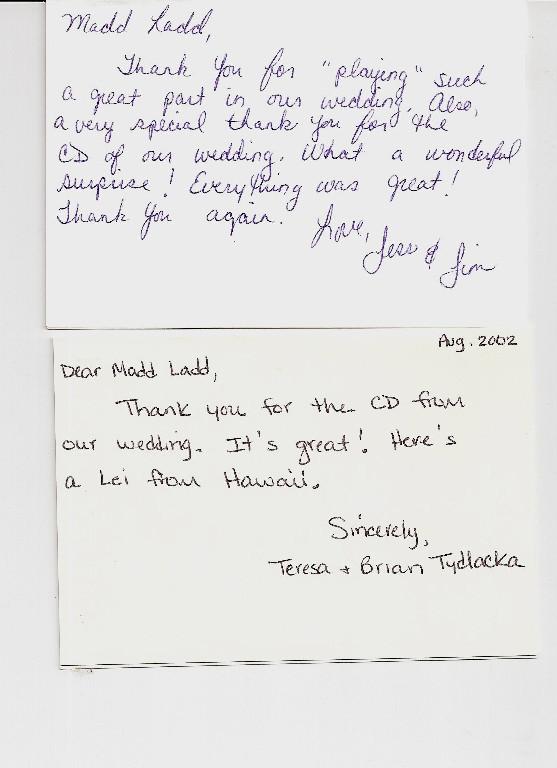 Madd Ladd,
Thank You for "playing" such
a great part in our wedding. Also,
a very special thank you for the
CD of our wedding. What a wonderful
surprise! Everything was great!
Thank You again.
Love,
Jess & Jim
Aug. 2002
Dear Madd Ladd,
Thank you for the CD from
our wedding. It's great! Here's
a Lei from Hawaii.
Sincerely,
Teresa + Brian Tydlacka